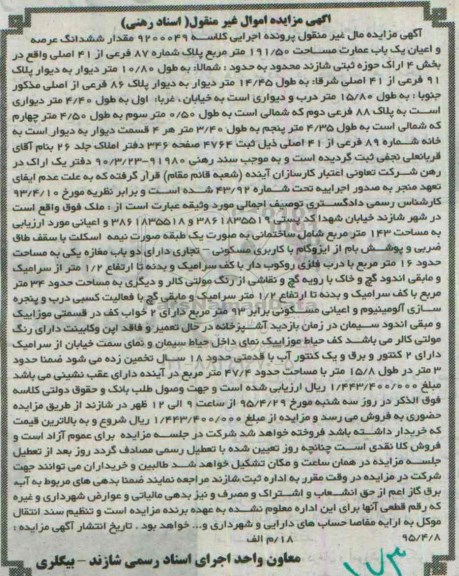 آگهی مزایده اموال غیر منقول( اسناد رهنی)
آگهی مزایده مال غیر منقول پرونده اجرایی کلاسه ۹۲۰۰۰۴۹ مقدار ششدانگ عرصه
و اعیان یک باب عمارت مساحت ۱۹۱/۵۰ متر مربع پلاک شماره ۸۷ فرعی از ۴۱ اصلی واقع در
بخش ۴ اراک حوزه ثبتی شازند محدود به حدود : شمالا: به طول ۱۰/۸۰ متر دیوار به دیوار پلاک
۹۱ فرعی از ۴۱ اصلی شرقا: به طول ۱۴/۴۵ متر دیوار به دیوار پلاک ۸۶ فرعی از اصلی مذکور
جنوبا : به طول ۱۵/۸۰ متر درب و دیواری است به خیابان ، غربا: اول به طول ۴/۴۰ متر دیواری
است به پلاک ۸۸ فرعی دوم که شمالی است به طول ۰/۵۰ متر سوم به طول ۴/۵۰ متر چهارم
که شمالی است به طول ۴/۳۵ متر پنجم به طول ۳/۴۰ متر هر ۴ قسمت دیوار به دیوار است به
خانه شماره ۸۹ فرعی از ۴۱ اصلی ذیل ثبت ۴۷۶۴ صفحه ۳۳۶ دفتر املاک جلد ۲۶ بنام آقای
قربانعلی نجفی ثبت گردیده است و به موجب سند رهنی ۹۱۹۸۰-۹۰/۳/۲۳ دفتر یک اراک در
رهن شرکت تعاونی اعتبار کارسازان آینده (شعبه قائم مقام) قرار گرفته که به علت عدم ایفای
تعهد منجر به صدور اجراییه تحت شماره ۴۳/۹۲ شده است و برابر نظریه مورخ ۹۳/۴/۱۰
کارشناس رسمی دادگستری توصیف اجمالی مورد وثیقه عبارت است از : ملک فوق واقع است
در شهر شازند خیابان شهدا کد پستی ۳۸۶۱۸۳۵۵۱۹ و ۳۸۶۱۸۳۵۵۱۸ و اعیانی مورد ارزیابی
به مساحت ۱۴۳ متر مربع شامل ساختمانی به صورت یک طبقه صورت نیمه اسکلت با سقف طاق
ضربی و پوشش بام از ایزوگام با کاربری مسکونی – تجاری دارای دو باب مغازه یکی به مساحت
حدود ۱۶ متر مربع با درب فلزی روکوب دار با کف سرامیک و بدنه تا ارتفاع ۱/۲ متر از سرامیک
و مابقی اندود گچ و خاک با رویه گچ و نقاشی از رنگ مولتی کالر و دیگری به مساحت حدود ۳۴ متر
مربع با کف سرامیک و بدنه تا ارتفاع ۱/۲ متر سرامیک و مابقی گچ با فعالیت کسبی درب و پنجره
سازی آلومینیوم و اعیانی مسکونی برابر ۹۳ متر مربع دارای ۲ خواب کف در قسمتی موزاییک
و مبقی اندود سیمان در زمان بازدید آشپزخانه در حال تعمیر و فاقد اپن وکابینت دارای رنگ
مولتی کالر می باشد کف حیاط موزاییک نمای داخل حیاط سیمان و نمای سمت خیابان از سرامیک
دارای ۲ کنتور و برق و یک کنتور آب با قدمتی حدود ۱۸ سال تخمین زده می شود ضمنا حدود
۳ متر در طول ۱۵/۸ متر با مساحت حدود ۴۷/۴ متر مربع در آینده دارای عقب نشینی می باشد
مبلغ ۱/۴۴۳/۴۰۰/۰۰۰ ریال ارزیابی شده است و جهت وصول طلب بانک و حقوق دولتی کلاسه
فوق الذکر در روز سه شنبه مورخ ۹۵/۴/۲۹ از ساعت ۹ الی ۱۲ ظهر در شازند از طریق مزایده
حضوری به فروش می رسد و مزایده از مبلغ ۱/۴۴۳/۴۰۰/۰۰۰ ریال شروع و به بالاترین قیمت
که خریدار داشته باشد فروخته خواهد شد شرکت در جلسه مزایده برای عموم آزاد است و
فروش کلا نقدی است چنانچه روز تعیین شده با تعطیل رسمی مصادف گردد روز بعد از تعطیل
جلسه مزایده در همان ساعت و مکان تشکیل خواهد شد طالبین و خریداران می توانند جهت
شرکت در مزایده در وقت مقرر به اداره ثبت شازند مراجعه نمایند ضمنا بدهی های مربوط به آب
برق گاز اعم از حق انشعاب و اشتراک و مصرف و نیز بدهی مالیاتی و عوارض شهرداری و غیره
که رقم قطعی آنها برای این اداره معلوم نشده به عهده برنده مزایده است و تنظیم سند انتقال
موکل به ارایه مفاصا حساب های دارایی و شهرداری و... خواهد بود . تاریخ انتشار آگهی مزایده :
۹۵/۴/۸ ۱۸/م الف
معاون واحد اجرای اسناد رسمی شازند – بیگلری
۱۷۳